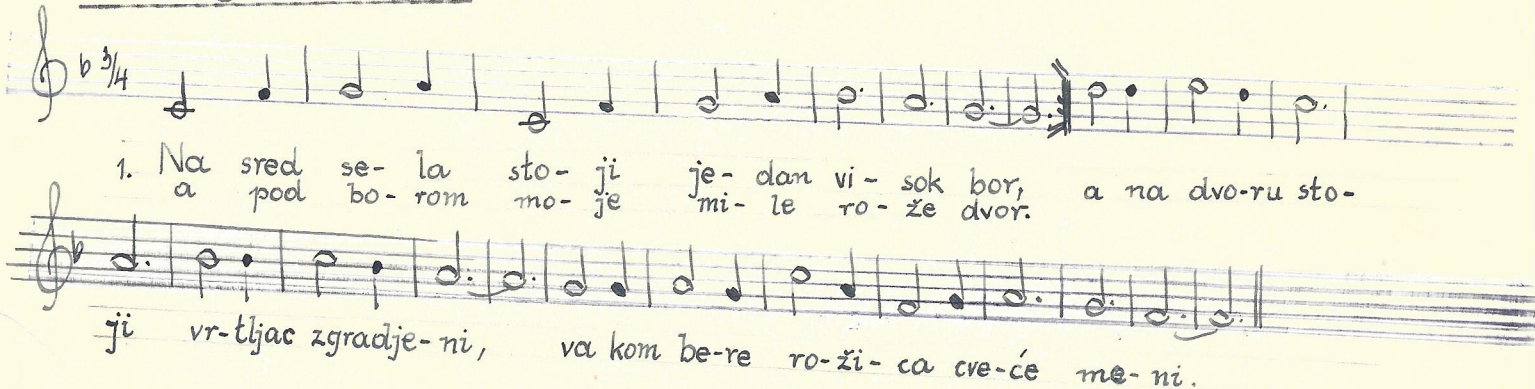 3/4
1. Na sred se- la sto- ji je- dan vi- sok bor, a na dvo-ru sto-
a pod bo- rom mo- je mi- le ro- že dvor.
ji vr-tljac zgradje- ni, va kom be-re ro-ži- ca cve-će me- ni.